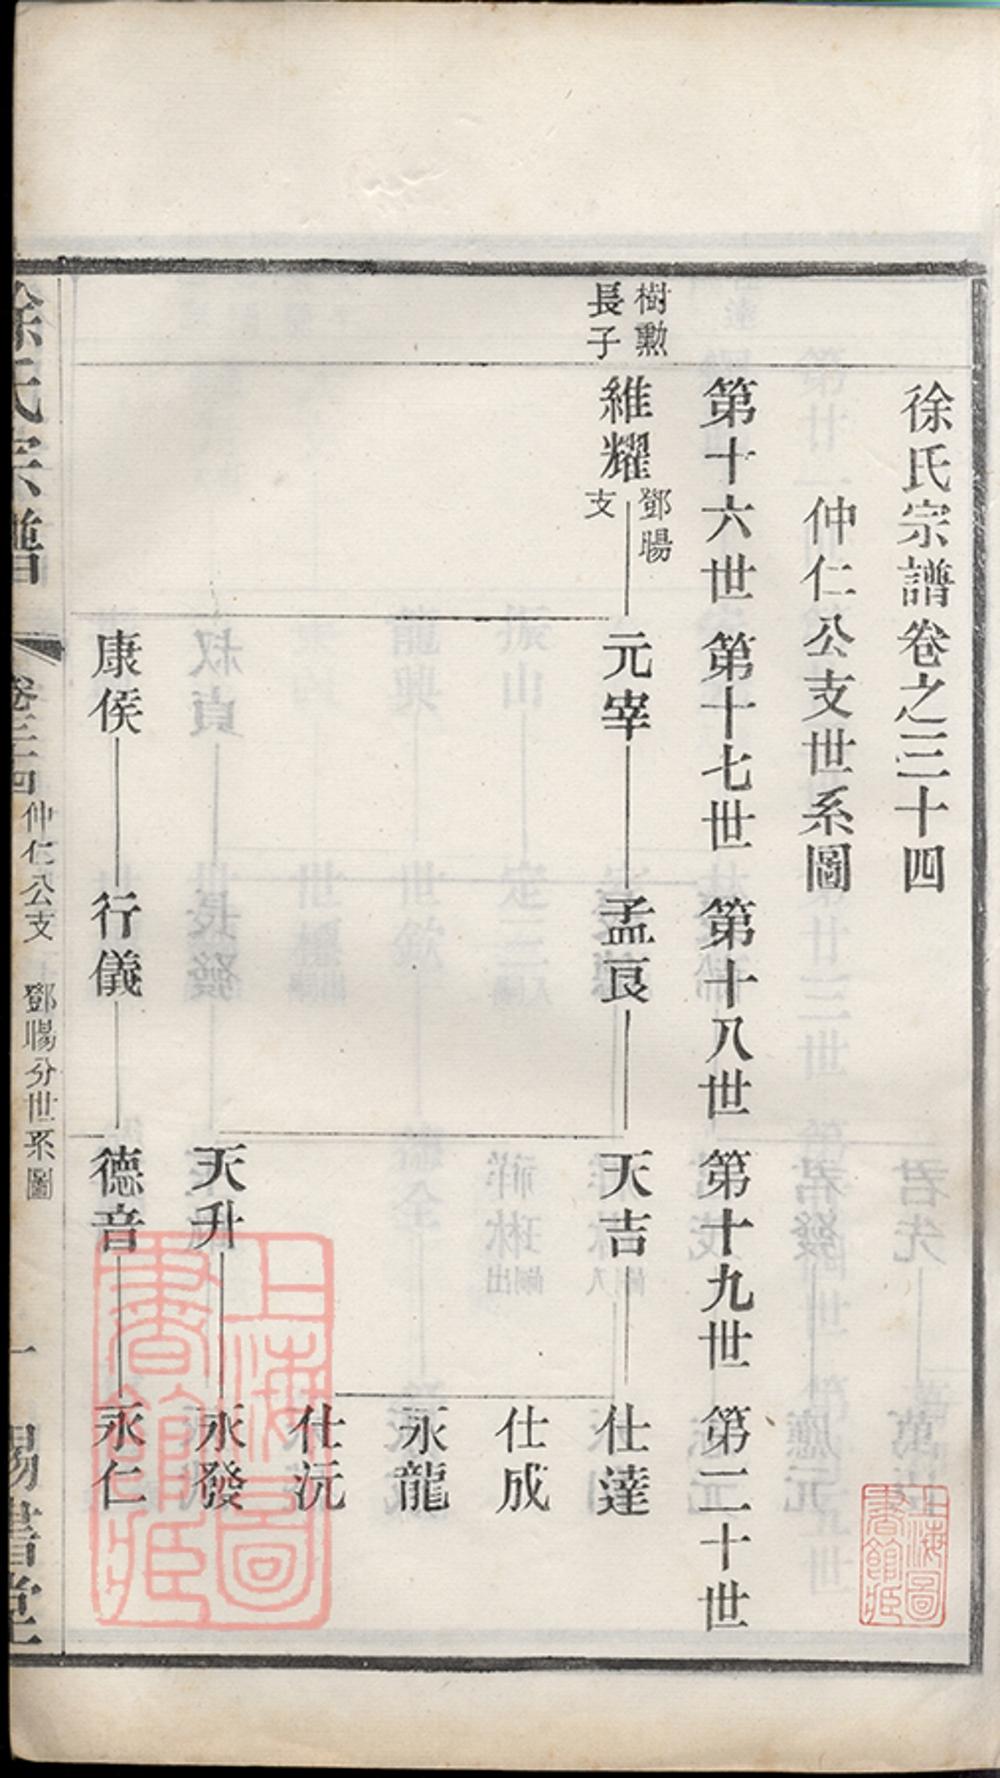 徐氏宗譜卷之三十四
仲仁公支世系圖
第十六世 第十七世 第十八世 第十九世 第二十世
樹勲
長子
維耀
鄧暘
支
元宰
孟良
天吉
仕達
仕成
永龍
仕沅
天升
永發
康侯
行儀
德音
永仁
徐氏宗譜
卷三十四
仲仁公支
鄧暘分世系圖
一
錫書堂
上海圖書館藏
上海圖書館藏